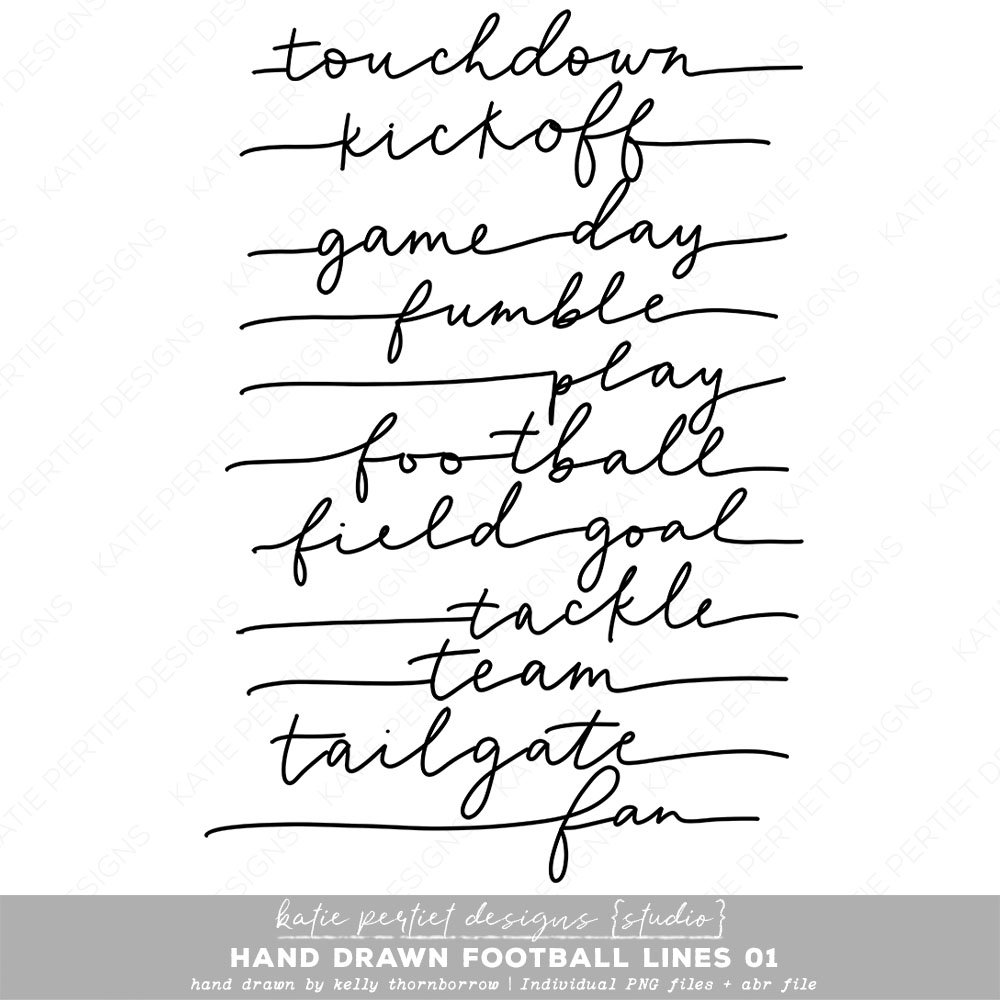 touchdown
kickoff
game day
fumble
play
football
field goal
tackle
team
tailgate
fan
katie pertiet designs {studio}
HAND DRAWN FOOTBALL LINES 01
hand drawn by kelly thornborrow | Individual PNG files + abr file
KATIE PERTIET DESIGNS